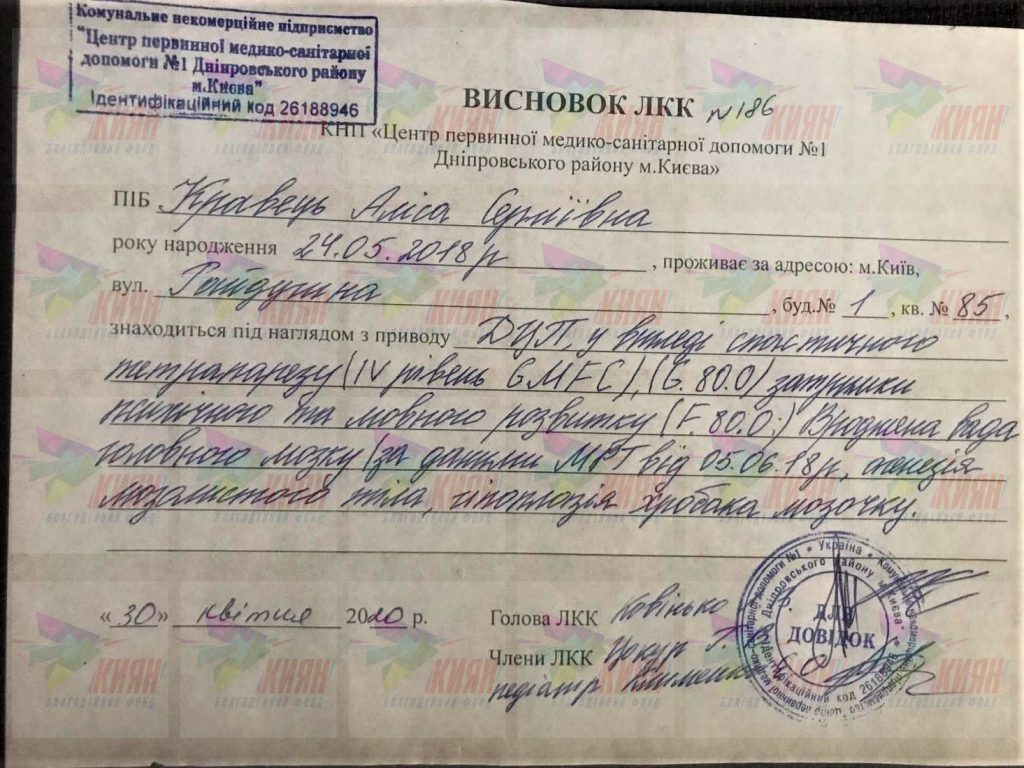 Комунальне некомерційне підприємство
"Центр первинної медико-санітарної
допомоги №1 Дніпровського району
м.Києва"
Ідентифікаційний код 26188946
ВИСНОВОК ЛКК №186
КНП «Центр первинної медико-санітарної допомоги №1
Дніпровського району м.Києва»
ПІБ Кравець Аліса Сергіївна
року народження 24.05.2018р , проживає за адресою: м.Київ,
вул. Райдужна , буд.№ 1 , кв. № 85 ,
знаходиться під наглядом з приводу ДЦП у вигляді спастичного
тетрапарезу (IV рівень GMFC), (G.80.0) затримки
психічного та мовного розвитку (F.80.0.) Вроджена вада
головного мозку (за даними МРТ від 05.06.18р, агенезія
мозолистого тіла, гіпоплазія хробака мозочку.
«30» квітня 2020 р.
Голова ЛКК Ковінько
Члени ЛКК
педіатр
ДЛЯ
ДОВІДОК
Україна
Дніпровського району м.Києва"
Ідентифікаційний код 26188946
КИЯН
БЛАГОДІЙНИЙ ФОНД